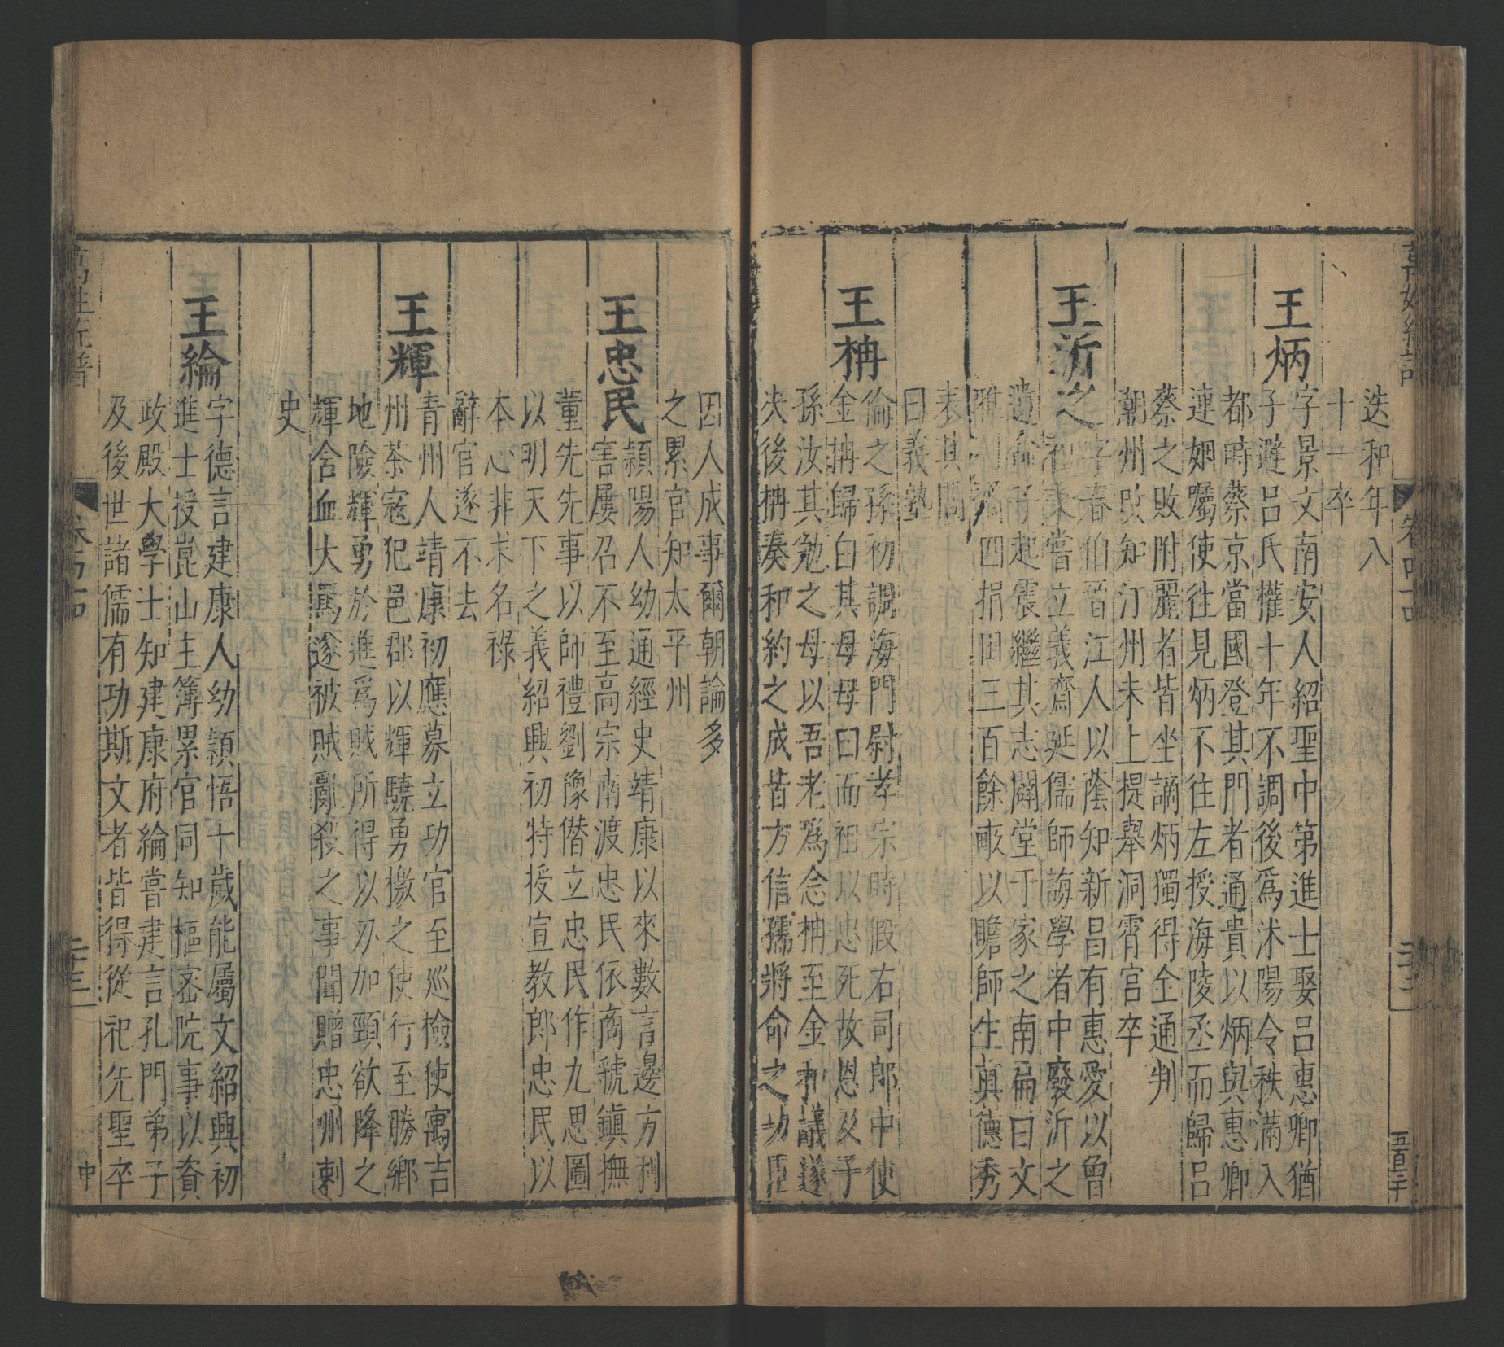 迭和年入
十一卒
王炳
字景文南安人紹聖中第進士娶呂惠卿猶
子避呂氏權十年不調後爲沭陽令秩滿入
都時蔡京當國登其門者通貴以炳與惠卿
連姻囑使往見炳不往左授海陵丞而歸呂
蔡之敗附麗者皆坐謫炳獨得全通判
潮州改知汀州未上提舉洞霄宮卒
王沂之
字春伯晉江人以蔭知新昌有惠愛以曾
祖秉嘗立義齋延儒師誨學者中廢沂之
遺命子起震繼其志闢堂于家之南扁曰文
雅 四捐田三百餘畝以贍師生眞德秀
表其閭
曰義塾
王枏
倫之孫初調海門尉孝宗時假右司郎中使
金枏歸白其母母曰而祖以忠死故恩及子
孫汝其勉之母以吾老爲念枏至金和議遂
决後枏奏和約之成皆方信孺將命之功臣
因人成事爾朝論多
之累官知太平州
王忠民
潁陽人幼通經史靖康以來數言邊方利
害屢召不至高宗南渡忠民依商虢鎮撫
董先先事以師禮劉豫僭立忠民作九思圖
以明天下之義紹興初特授宣教郎忠民以
本心非求名祿
辭官遂不去
王輝
青州人靖康初應募立功官至巡檢使寓吉
州荼寇犯邑郡以輝驍勇檄之使行至勝鄉
地險輝勇於進爲賊所得以刃加頸欲降之
輝含血大罵遂被賊亂殺之事聞贈忠州刺
史
王綸
字德言建康人幼頴悟十歲能屬文紹興初
進士授崑山主簿累官同知樞密院事以資
政殿大學士知建康府綸嘗建言孔門弟子
及後世諸儒有功斯文者皆得從祀先聖卒